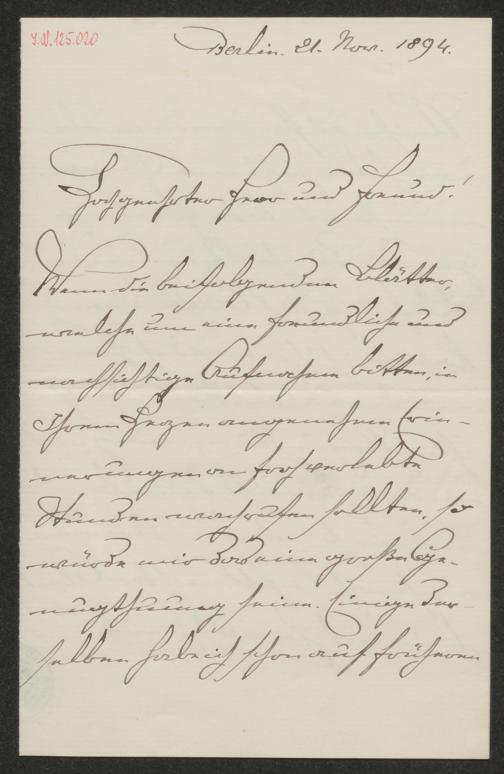 I.N. 125.020
Berlin. 21. Nov. 1894.
Hochgeehrter Herr und Freund!
Wenn die beifolgenden Blätter,
welche um eine freundliche und
nachsichtige Aufnahme bitten, in
Ihrem Herzen angenehme Erin-
nerungen an froh verlebte
Stunden wachrufen sollten, so
würde mir das eine große Ge-
nugthuung sein. Einige der-
selben habe ich schon auf früheren